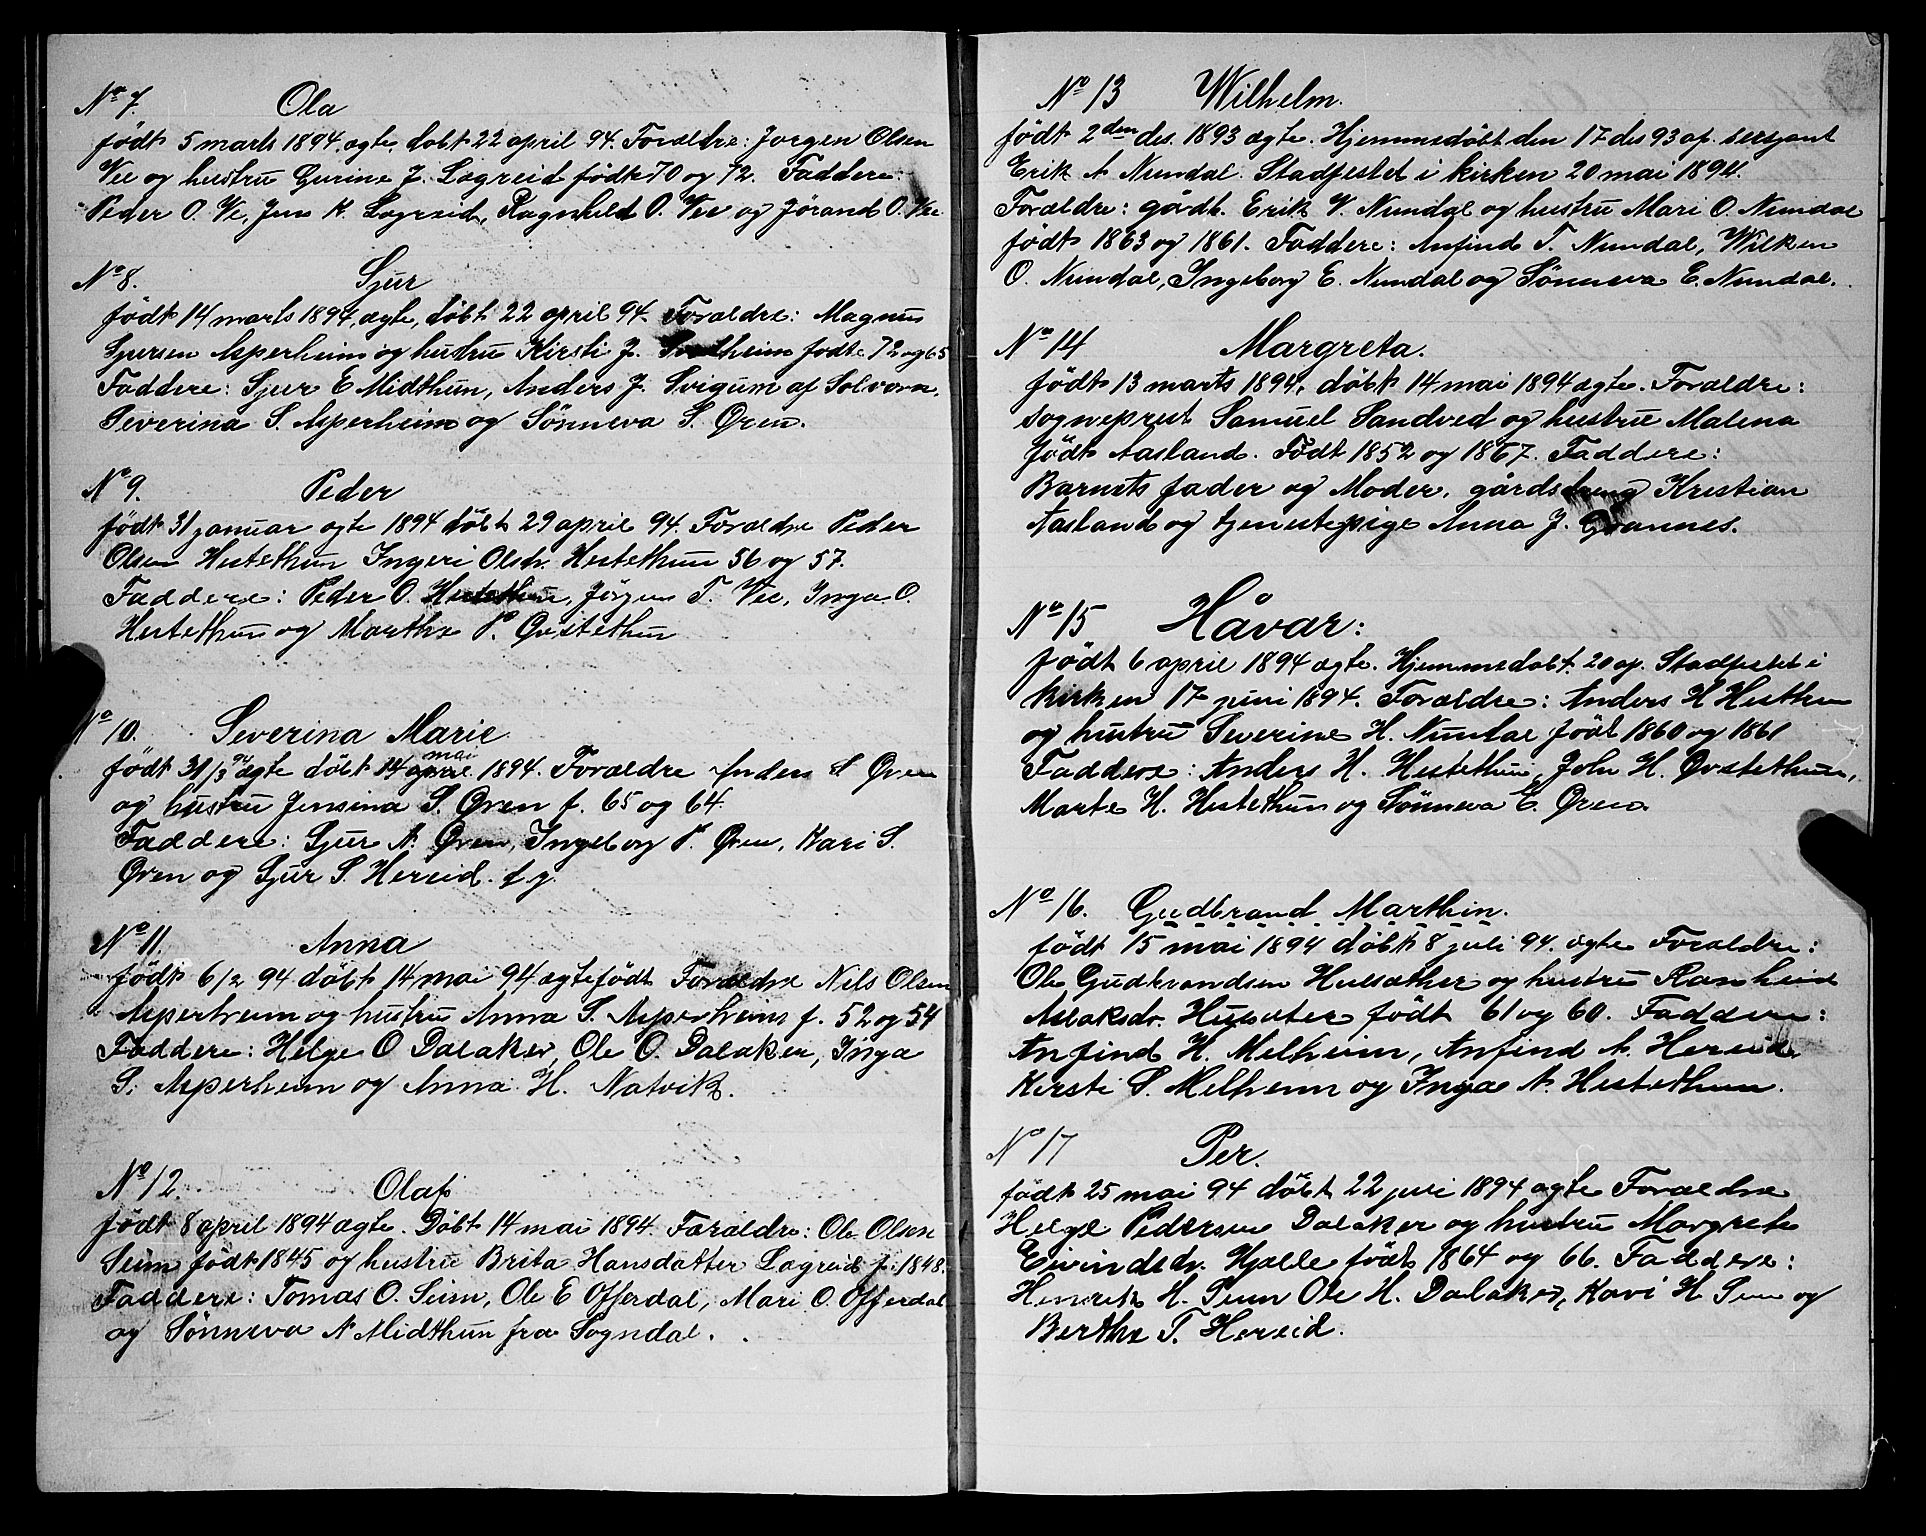 No 7. Ola
født 5 marts 1894, ægte, døbt 22 april 94. Forældre: Jørgen Olsen
Vee og hustru Gurine J. Lægreid født 70 og 72. Faddere:
Peder O. Ve, Jens K. Lægreid, Ragnhild O. Vee og Jørand O. Vee
No 8. Sjur
født 14 marts 1894, ægte, døbt 22 april 94. Forældre: Magnus
Sjursen Asperheim og hustru Kirsti J. fødte 72 og 65
Faddere: Sjur E Midthun, Anders J. Svigum af Solvorn,
Severina S. Asperheim og Sønneva S. Øren.
No 9. Peder
født 31 januar ægte 1894 døbt 29 april 94. Forældre Peder
Olsen Hestethun Ingeri Olsdr. Hestethun 56 og 57.
Faddere: Peder O. Hestethun, Jørgen T. Vee, Inga O.
Hestethun og Marthe P. Qvistethun
No 10. Severina Marie
mai
født 31/3 94 ægte døbt 14 april 1894. Forældre Anders S Øren
og hustru Jensina S. Øren f. 65 og 64.
Faddere: Sjur A. Øren, Ingeborg P. Øren, Kari S.
Øren og Sjur S. Hereid. f.g.
No 11. Anna
født 6/2 94 døbt 14 mai 94 ægtefødt Forældre Nils Olsen
Asperheim og hustru Anna S. Asperheim f. 52 og 54
Faddere: Helge O Dalaker, Ole O. Dalaker, Inga
S. Asperheim og Anna H. Natvik.
No 12. Olaf
født 8 april 1894 ægte. Døbt 14 mai 1894. Forældre: Ole Olsen
Seim født 1845 og hustru Brita Hansdatter Lægreid f. 1848.
Faddere: Tomas O. Seim, Ole E Offerdal, Mari O. Offerdal
og Sønneva N Midthun fra Sogndal.
No 13 Wilhelm.
født 2den des. 1893 ægte. Hjemmedøbt den 17 des 93 af sersjant
Erik A Nundal. Stadfestet i kirken 20 mai 1894.
Forældre: gårdb. Erik V. Nundal og hustru Mari O. Nundal
født 1863 og 1861. Faddere: Anfind T. Nundal, Wilken
O. Nundal, Ingeborg E. Nundal og Sønneva E. Nundal.
No 14 Margreta.
født 13 marts 1894, døbt 14 mai 1894 ægte. Forældre:
sogneprest Samuel Sandved og hustru Malena
født Aasland. Født 1852 og 1867. Faddere:
Barnets fader og Moder, gårdsdreng Kristian
Aasland og tjenestepige Anna J.
No 15 Håvar:
født 6 april 1894 ægte. Hjemmedøbt 20 ap. Stadfestet i
kirken 17 juni 1894. Forældre: Anders H Hesthun
og hustru Severine H. Nundal født 1860 og 1861
Faddere: Anders H. Hestethun, John H. Qvstethun,
Marte H. Hestethun og Sønneva E. Øren.
No 16. Gudbrand Marthin.
født 15 mai 1894 døbt 8 juli 94. ægte Forældre:
Ole Gudbrandsen Hulsæther og hustru Ranheid
Aslaksdr. Husæter født 61 og 60. Faddere:
Anfind H. Melheim, Anfind A. Hereid,
Kirsti S. Melheim og Inga A. Hestethun.
No 17 Per.
født 25 mai 94 døbt 22 juli 1894 ægte Forældre
Helge Pedersen Dalaker og hustru Margrete
Eivindsdr. Hjelle født 1864 og 66. Faddere:
Henrik H. Seim Ole H. Dalaker, Kari H Seim og
Berthe T. Hereid.